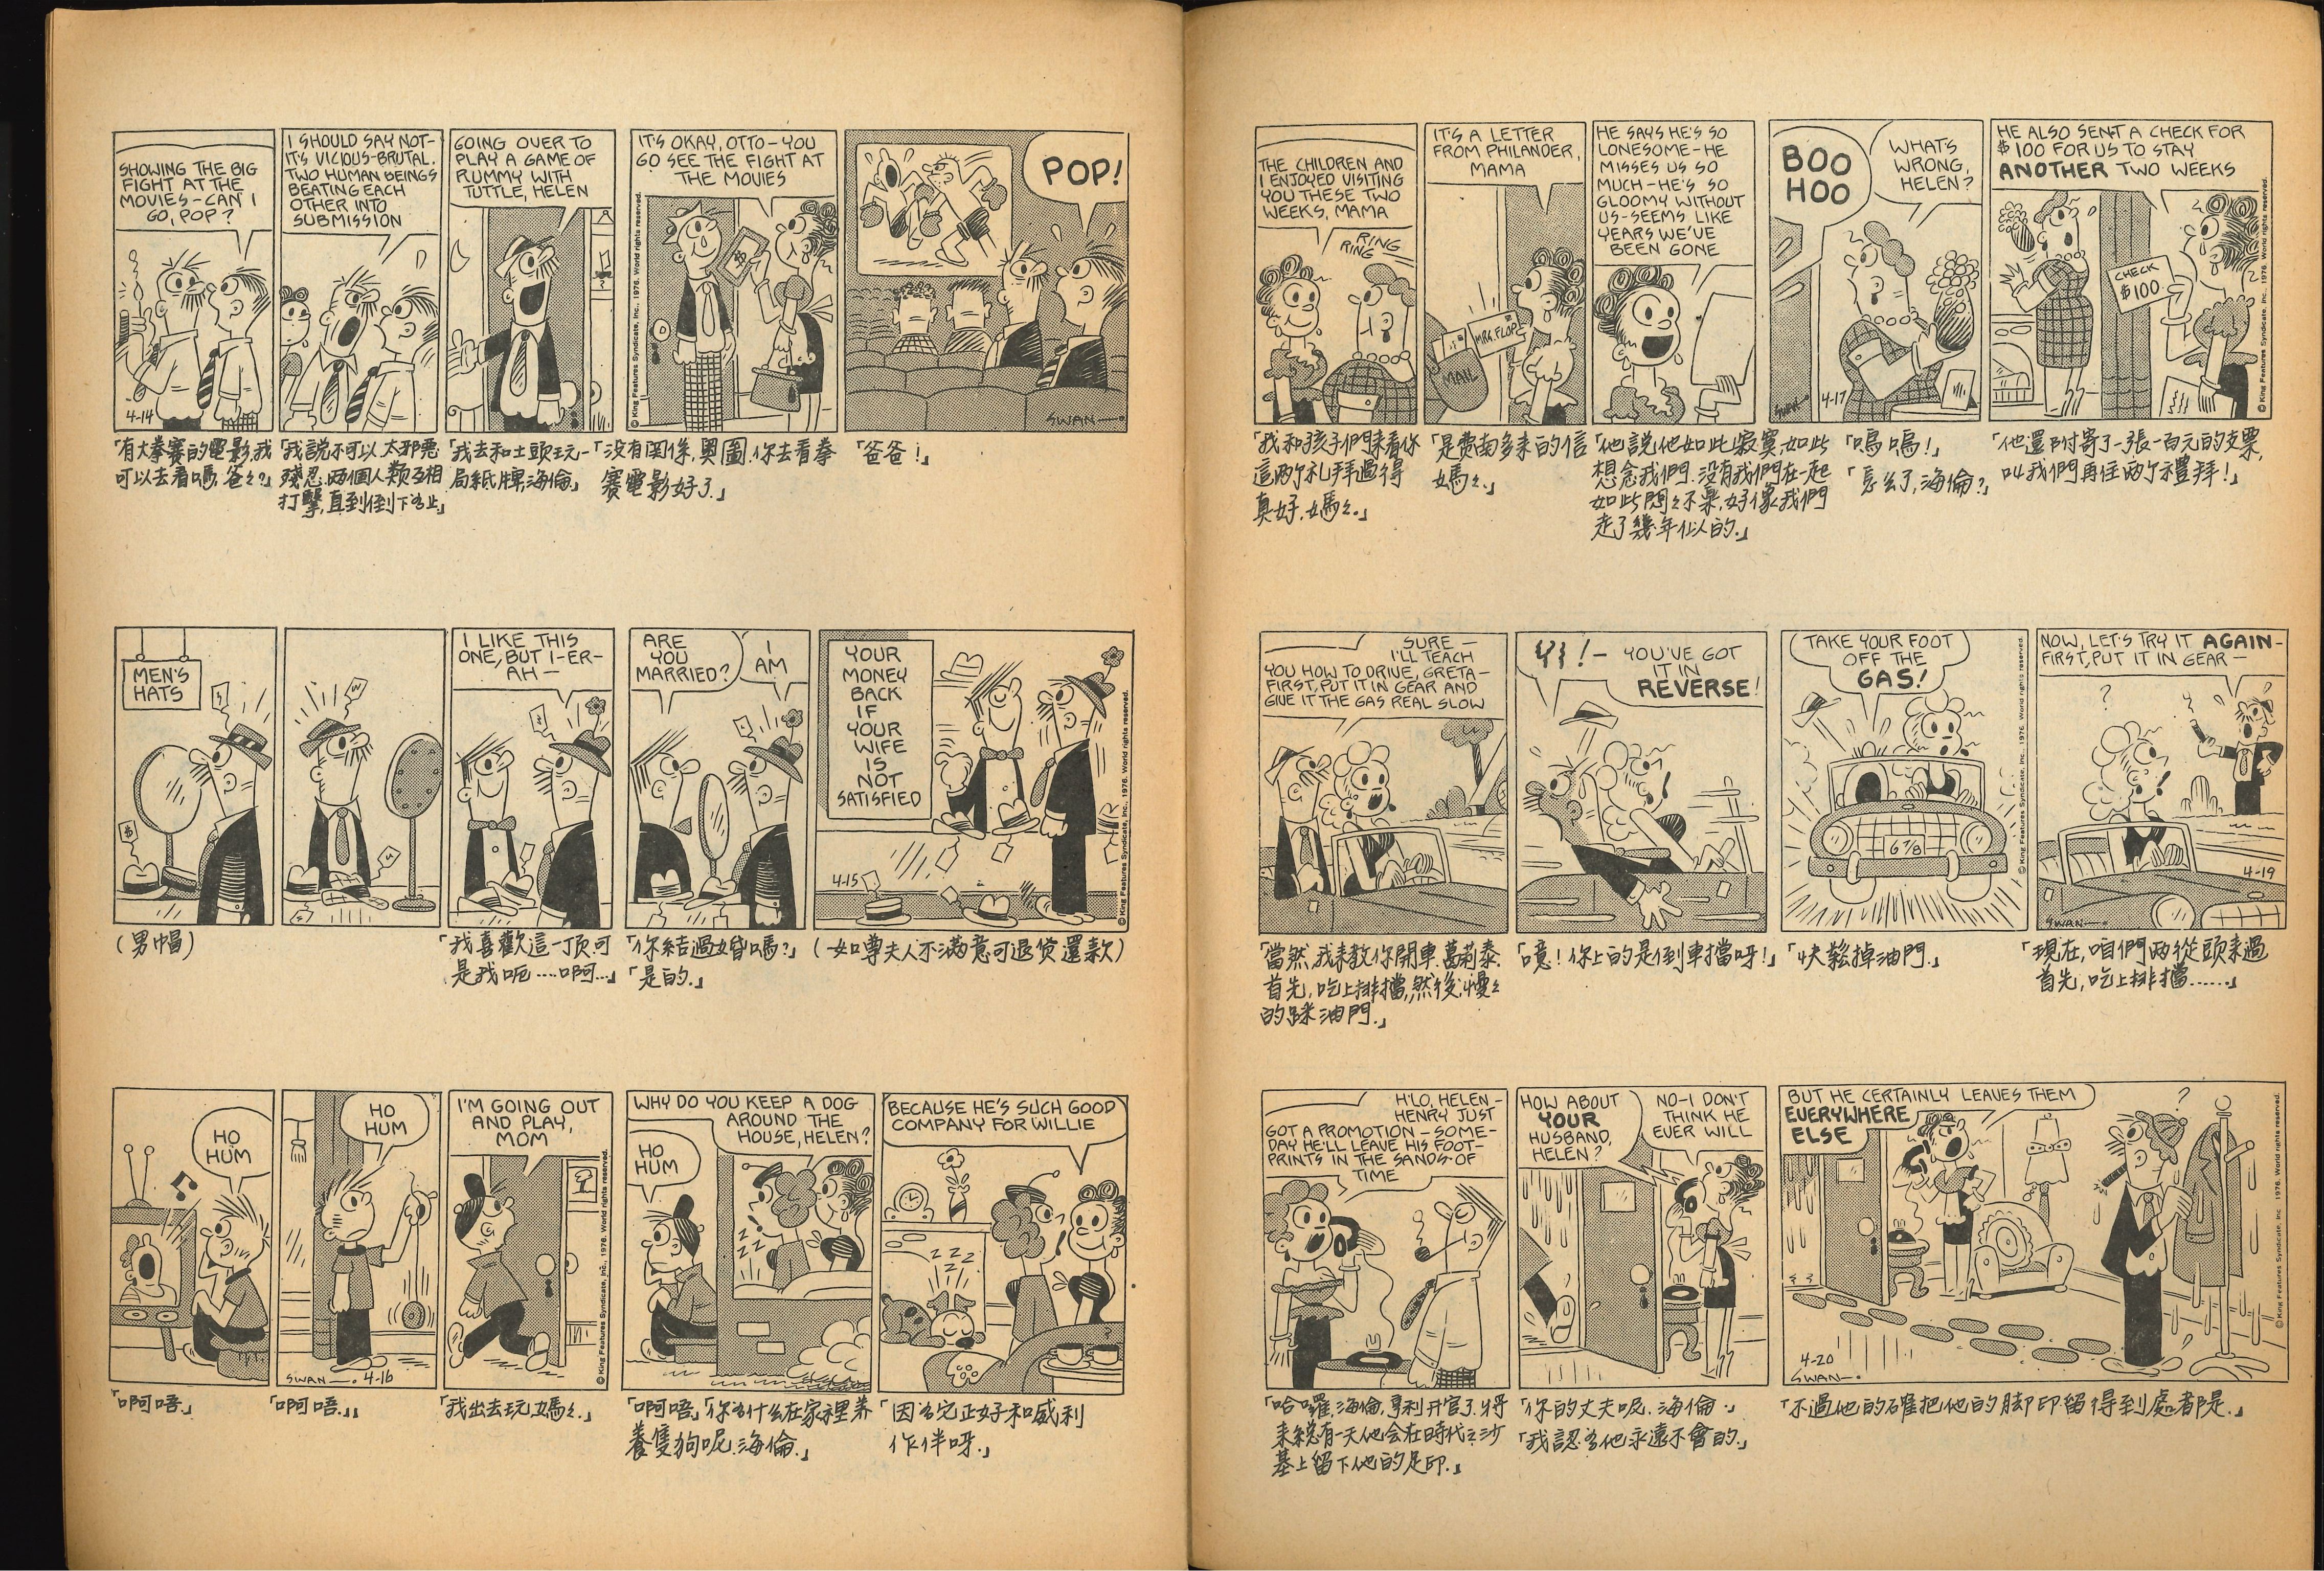 SHOWING THE BIG
FIGHT AT THE
MOVIES - CAN I
GO, POP?
4-14
I SHOULD SAY NOT-
IT'S VICIOUS-BRUTAL.
TWO HUMAN BEINGS
BEATING EACH
OTHER INTO
SUBMISSION
GOING OVER TO
PLAY A GAME OF
RUMMY WITH
TUTTLE, HELEN
IT'S OKAY, OTTO - YOU
GO SEE THE FIGHT AT
THE MOVIES
$
© King Features Syndicate, Inc., 1976. World rights reserved.
POP!
SWAN
「有大拳賽的電影,我
可以去看嗎,爸々?」
「我說不可以,太邪惡
殘忍.兩個人類互相
打擊,直到倒下為止」
「我去和土頭玩一
局紙牌,海倫」
「没有関係,奧圖.你去看拳
賽電影好了.」
「爸爸!」
MEN'S
HATS
$
I LIKE THIS
ONE, BUT I-ER-
AH -
ARE
YOU
MARRIED?
I
AM
YOUR
MONEY
BACK
IF
YOUR
WIFE
IS
NOT
SATISFIED
4-15
© King Features Syndicate, Inc., 1976. World rights reserved.
(男帽)
「我喜歡這一頂,可
是我呃……啊…」
「你結過婚嗎?」
「是的.」
(如尊夫人不滿意可退貨還款)
HO
HUM
HO
HUM
SWAN 4-16
I'M GOING OUT
AND PLAY,
MOM
© King Features Syndicate, Inc., 1976. World rights reserved.
WHY DO YOU KEEP A DOG
AROUND THE
HOUSE, HELEN?
HO
HUM
ZZZ
BECAUSE HE'S SUCH GOOD
COMPANY FOR WILLIE
ZZZ
「啊唔.」
「啊唔.」
「我出去玩,媽々.」
「啊唔」「你為什么在家裡养
養隻狗呢,海倫.」
「因為它正好和威利
作伴呀.」
THE CHILDREN AND
I ENJOYED VISITING
YOU THESE TWO
WEEKS, MAMA
RING
RING
IT'S A LETTER
FROM PHILANDER,
MAMA
MRS. FLOP
MAIL
HE SAYS HE'S SO
LONESOME - HE
MISSES US SO
MUCH - HE'S SO
GLOOMY WITHOUT
US - SEEMS LIKE
YEARS WE'VE
BEEN GONE
BOO
HOO
WHAT'S
WRONG,
HELEN?
SWAN 4-17
HE ALSO SENT A CHECK FOR
$100 FOR US TO STAY
ANOTHER TWO WEEKS
CHECK
$100
© King Features Syndicate, Inc., 1976. World rights reserved.
「我和孩子們來看你
這兩个礼拜過得
真好,媽々.」
「是费南多来的信
媽々.」
「他說他如此寂寞,如此
想念我們.没有我們在一起
如此悶々不樂,好像我們
走了幾年似的.」
「嗚嗚!」
「怎么了,海倫?」
「他還附寄了一張一百元的支票,
叫我們再住兩个禮拜!」
SURE -
I'LL TEACH
YOU HOW TO DRIVE, GRETA -
FIRST, PUT IT IN GEAR AND
GIVE IT THE GAS REAL SLOW
YI! -
YOU'VE GOT
IT IN
REVERSE!
TAKE YOUR FOOT
OFF THE
GAS!
678
© King Features Syndicate, Inc., 1976. World rights reserved.
NOW, LET'S TRY IT AGAIN -
FIRST, PUT IT IN GEAR -
?
4-19
SWAN
「當然,我来教你開車,葛莉泰.
首先,吃上排擋,然後,慢々
的踩油門.」
「噫!你上的是倒車擋呀!」
「快鬆掉油門.」
「現在,咱們兩從頭来過
首先,吃上排擋……」
H'LO, HELEN -
HENRY JUST
GOT A PROMOTION - SOME-
DAY HE'LL LEAVE HIS FOOT-
PRINTS IN THE SANDS OF
TIME
HOW ABOUT
YOUR
HUSBAND,
HELEN?
NO - I DON'T
THINK HE
EVER WILL
BUT HE CERTAINLY LEAVES THEM
EVERYWHERE
ELSE
?
4-20
SWAN
© King Features Syndicate, Inc 1976. World rights reserved.
「哈囉,海倫,亨利升官了.將
来總有一天他会在時代之沙
基上留下他的足印.」
「你的丈夫呢,海倫.」
「我認為他永遠不會的.」
「不過他的確把他的脚印留得到處都是.」